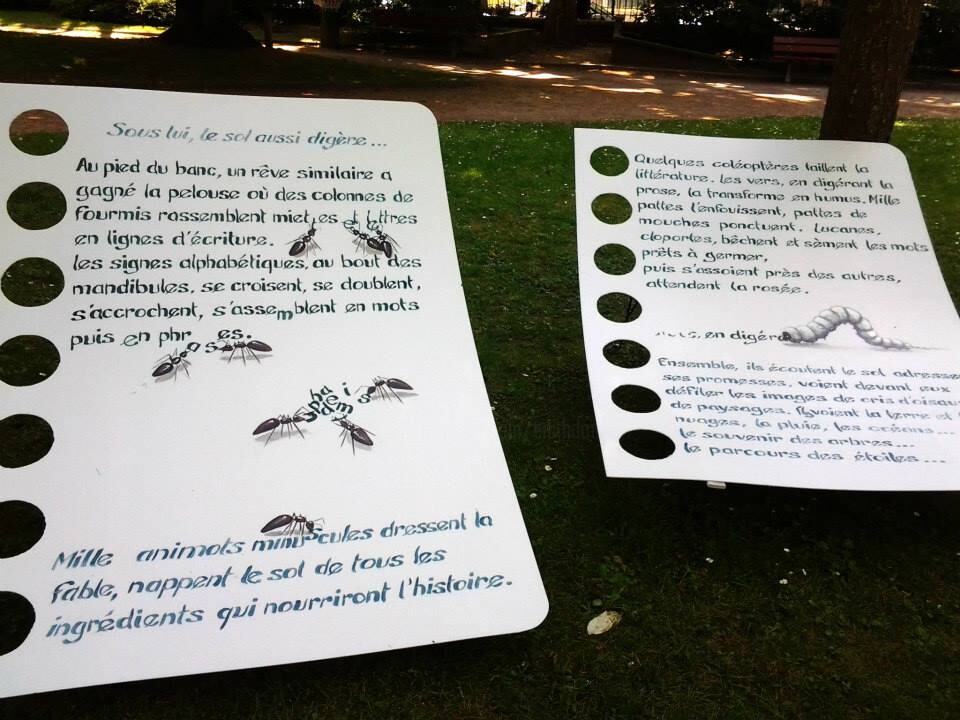 Sous lui, le sol aussi digère...
Au pied du banc, un rêve similaire a
gagné la pelouse où des colonnes de
fourmis rassemblent miettes et lettres
en lignes d'écriture.
les signes alphabétiques, au bout des
mandibules, se croisent, se doublent,
s'accrochent, s'assemblent en mots
puis en phrases.
Mille animots minuscules dressent la
fable, nappent le sol de tous les
ingrédients qui nourriront l'histoire.
Quelques coléoptères taillent la
littérature. les vers, en digérant la
prose, la transforme en humus. Mille
pattes l'enfouissent, pattes de
mouches ponctuent. Lucanes,
cloportes, bêchent et sèment les mots
prêts à germer,
puis s'assoient près des autres,
attendent la rosée.
en digéra
Ensemble, ils écoutent le sol adresse
ses promesses, voient devant eux
défiler les images de cris d'oiseau
de paysages. Revoient la terre et
nuages, la pluie, les océans...
le souvenir des arbres...
le parcours des étoiles...